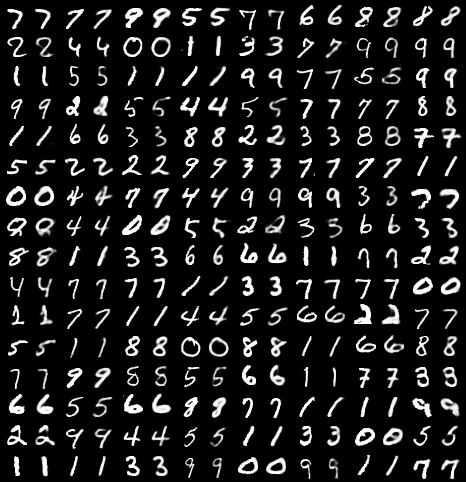 7 7 7 7 9 9 5 5 7 7 6 6 8 8 8 8
2 2 4 4 0 0 1 1 3 3 7 7 9 9 9 9
1 1 5 5 1 1 1 1 9 9 7 7 5 5 9 9
9 9 2 2 5 5 4 4 5 5 7 7 7 7 8 8
1 1 6 6 3 3 8 8 2 2 3 3 8 8 7 7
5 5 2 2 2 2 9 9 3 3 7 7 7 7 1 1
0 0 4 4 7 7 4 4 9 9 9 9 3 3 7 7
8 8 4 4 0 0 5 5 2 2 3 3 6 6 3 3
8 8 1 1 3 3 6 6 6 6 1 1 7 7 2 2
4 4 7 7 7 7 1 1 3 3 7 7 7 7 0 0
1 1 7 7 1 1 4 4 5 5 6 6 2 2 7 7
5 5 1 1 8 8 0 0 8 8 1 1 6 6 8 8
7 7 9 9 8 8 5 5 6 6 1 1 7 7 3 3
6 6 5 5 6 6 8 8 7 7 1 1 1 1 9 9
2 2 9 9 4 4 5 5 1 1 3 3 0 0 5 5
1 1 1 1 3 3 9 9 0 0 9 9 1 1 7 7